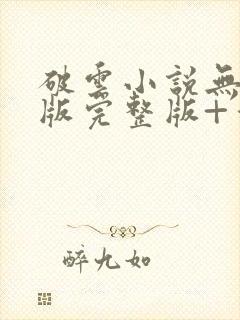 破雲小說無
版完整版+
醉九如